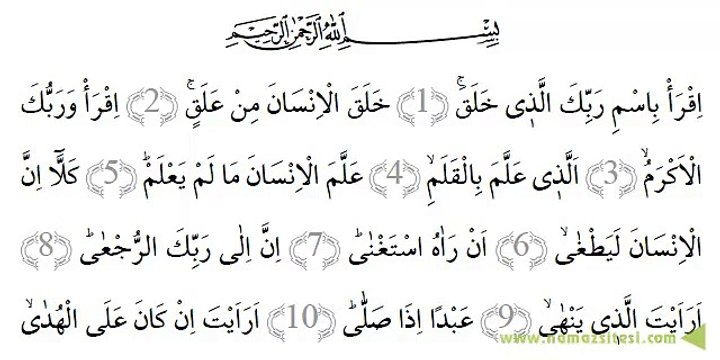 بِسْمِ اللهِ الرَّحْمٰنِ الرَّحِيمِ
اِقْرَأْ بِاسْمِ رَبِّكَ الَّذٖى خَلَقَۚ ﴿1﴾ خَلَقَ الْاِنْسَانَ مِنْ عَلَقٍۚ ﴿2﴾ اِقْرَأْ وَرَبُّكَ
الْاَكْرَمُۙ ﴿3﴾ اَلَّذٖى عَلَّمَ بِالْقَلَمِۙ ﴿4﴾ عَلَّمَ الْاِنْسَانَ مَا لَمْ يَعْلَمْؕ ﴿5﴾ كَلَّٓا اِنَّ
الْاِنْسَانَ لَيَطْغٰىۙ ﴿6﴾ اَنْ رَاٰهُ اسْتَغْنٰىؕ ﴿7﴾ اِنَّ اِلٰى رَبِّكَ الرُّجْعٰىؕ ﴿8﴾
اَرَاَيْتَ الَّذٖى يَنْهٰىۙ ﴿9﴾ عَبْدًا اِذَا صَلّٰىؕ ﴿10﴾ اَرَاَيْتَ اِنْ كَانَ عَلَى الْهُدٰىۙ
www.namazsitesi.com